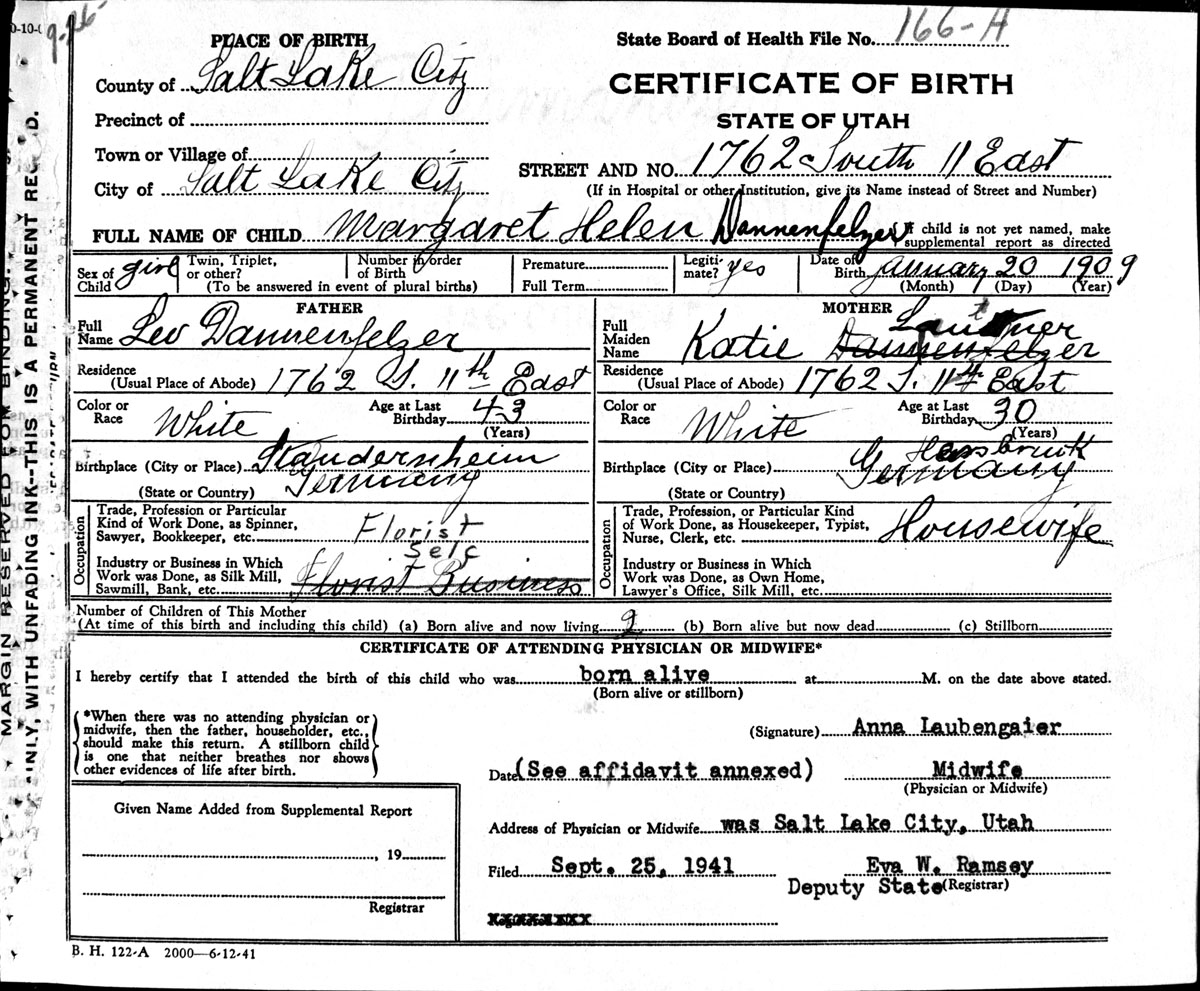 9-26
166-A
PLACE OF BIRTH
State Board of Health File No. 166-A
County of Salt Lake City
CERTIFICATE OF BIRTH
Precinct of
STATE OF UTAH
Town or Village of
STREET AND NO. 1762 South 11 East
City of Salt Lake City
(If in Hospital or other Institution, give its Name instead of Street and Number)
FULL NAME OF CHILD Margaret Helen Dannenfelzer
If child is not yet named, make
supplemental report as directed
Sex of Child girl
Twin, Triplet, or other?
Number in order of Birth
(To be answered in event of plural births)
Premature
Full Term
Legiti-mate? yes
Date of Birth January 20 1909
(Month) (Day) (Year)
FATHER
Full Name Leo Dannenfelzer
Residence
(Usual Place of Abode) 1762 S. 11th East
Color or Race White
Age at Last Birthday 43
(Years)
Birthplace (City or Place) Staudernheim
(State or Country) Germany
Occupation
Trade, Profession or Particular
Kind of Work Done, as Spinner,
Sawyer, Bookkeeper, etc. Florist
Self
Industry or Business in Which
Work was Done, as Silk Mill,
Sawmill, Bank, etc. Florist Business
MOTHER
Full Maiden Name Katie Dannenfelzer
Residence
(Usual Place of Abode) 1762 S. 11th East
Color or Race White
Age at Last Birthday 30
(Years)
Birthplace (City or Place)
(State or Country) Germany
Occupation
Trade, Profession, or Particular Kind
of Work Done, as Housekeeper, Typist,
Nurse, Clerk, etc. Housewife
Industry or Business in Which
Work was Done, as Own Home,
Lawyer's Office, Silk Mill, etc.
Number of Children of This Mother
(At time of this birth and including this child) (a) Born alive and now living 2 (b) Born alive but now dead (c) Stillborn
CERTIFICATE OF ATTENDING PHYSICIAN OR MIDWIFE*
I hereby certify that I attended the birth of this child who was born alive at M. on the date above stated.
(Born alive or stillborn)
*When there was no attending physician or
midwife, then the father, householder, etc.,
should make this return. A stillborn child
is one that neither breathes nor shows
other evidences of life after birth.
(Signature) Anna Laubengaier
Date (See affidavit annexed) Midwife
(Physician or Midwife)
Given Name Added from Supplemental Report
, 19
Registrar
Address of Physician or Midwife was Salt Lake City, Utah
Filed Sept. 25, 1941 Eva W. Ramsey
Deputy State (Registrar)
B. H. 122-A 2000—6-12-41
MARGIN RESERVED FOR BINDING.
INLY, WITH UNFADING INK--THIS IS A PERMANENT REC D.